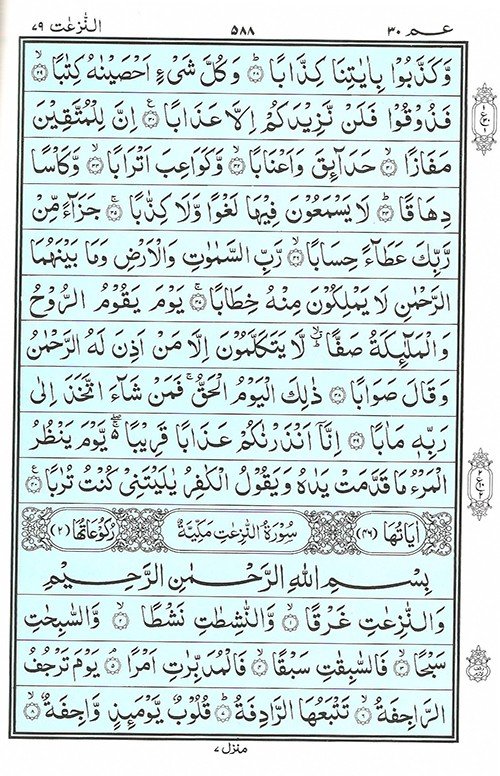 عـم ٣٠ ٥٨٨ النّٰزعٰت ٧٩
وَّكَذَّبُوْا بِاٰيٰتِنَا كِذَّابًا ۞ وَكُلَّ شَيْءٍ اَحْصَيْنٰهُ كِتٰبًا ۞
فَذُوْقُوْا فَلَنْ نَّزِيْدَكُمْ اِلَّا عَذَابًا ۞ اِنَّ لِلْمُتَّقِيْنَ
مَفَازًا ۞ حَدَآئِقَ وَاَعْنَابًا ۞ وَّكَوَاعِبَ اَتْرَابًا ۞ وَّكَاْسًا
دِهَاقًا ۞ لَا يَسْمَعُوْنَ فِيْهَا لَغْوًا وَّلَا كِذّٰبًا ۞ جَزَآءً مِّنْ
رَّبِّكَ عَطَآءً حِسَابًا ۞ رَّبِّ السَّمٰوٰتِ وَالْاَرْضِ وَمَا بَيْنَهُمَا
الرَّحْمٰنِ لَا يَمْلِكُوْنَ مِنْهُ خِطَابًا ۞ يَوْمَ يَقُوْمُ الرُّوْحُ
وَالْمَلٰٓئِكَةُ صَفًّا ۙ لَّا يَتَكَلَّمُوْنَ اِلَّا مَنْ اَذِنَ لَهُ الرَّحْمٰنُ
وَقَالَ صَوَابًا ۞ ذٰلِكَ الْيَوْمُ الْحَقُّ ۚ فَمَنْ شَآءَ اتَّخَذَ اِلٰى
رَبِّهٖ مَاٰبًا ۞ اِنَّآ اَنْذَرْنٰكُمْ عَذَابًا قَرِيْبًا ۚ يَّوْمَ يَنْظُرُ
الْمَرْءُ مَا قَدَّمَتْ يَدٰهُ وَيَقُوْلُ الْكٰفِرُ يٰلَيْتَنِيْ كُنْتُ تُرٰبًا ۞
اٰيَاتُهَا (٤٦) سُوْرَةُ النّٰزِعٰتِ مَكِّيَّةٌ رُكُوْعَاتُهَا (٢)
بِسْمِ اللّٰهِ الرَّحْمٰنِ الرَّحِيْمِ
وَالنّٰزِعٰتِ غَرْقًا ۞ وَّالنّٰشِطٰتِ نَشْطًا ۞ وَّالسّٰبِحٰتِ
سَبْحًا ۞ فَالسّٰبِقٰتِ سَبْقًا ۞ فَالْمُدَبِّرٰتِ اَمْرًا ۞ يَوْمَ تَرْجُفُ
الرَّاجِفَةُ ۞ تَتْبَعُهَا الرَّادِفَةُ ۞ قُلُوْبٌ يَّوْمَئِذٍ وَّاجِفَةٌ ۞
منزل ٧